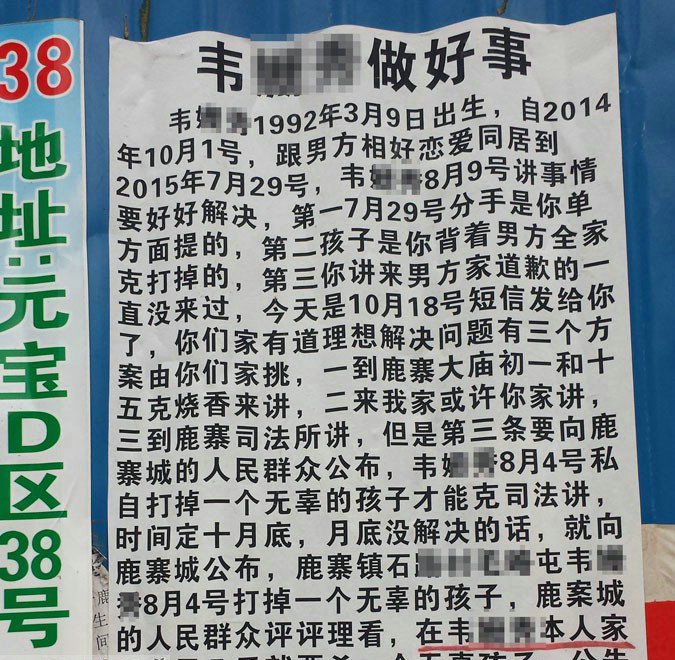 38
地址:元宝D区38号
韦秀做好事
韦 1992年3月9日出生，自2014
年10月1号，跟男方相好恋爱同居到
2015年7月29号，韦 8月9号讲事情
要好好解决，第一7月29号分手是你单
方面提的，第二孩子是你背着男方全家
克打掉的，第三你讲来男方家道歉的一
直没来过，今天是10月18号短信发给你
了，你们家有道理想解决问题有三个方
案由你们家挑，一到鹿寨大庙初一和十
五克烧香来讲，二来我家或许你家讲，
三到鹿寨司法所讲，但是第三条要向鹿
寨城的人民群众公布，韦 8月4号私
自打掉一个无辜的孩子才能克司法讲，
时间定十月底，月底没解决的话，就向
鹿寨城公布，鹿寨镇石 屯韦
8月4号打掉一个无辜的孩子，鹿案城
的人民群众评评理看，在韦 本人家
鹿
生
间